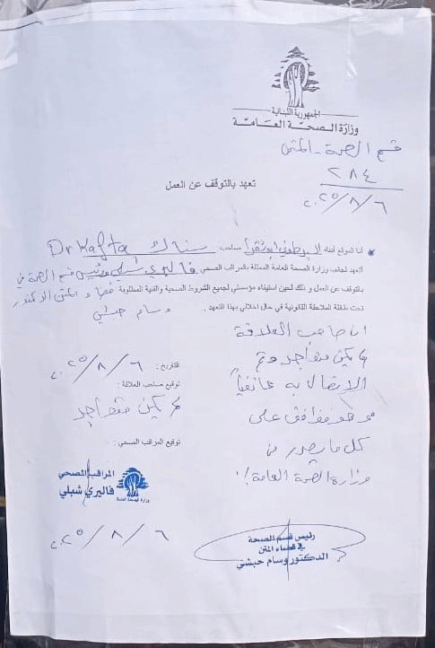 الجمهورية اللبنانية
وزارة الصحة العامة
قسم الصحة - المتن
٢٨٤
٢٠٢٥/٨/٦
تعهد بالتوقف عن العمل
انا الموقع ادناه صاحب سناك Dr Kafta
اتعهد لجانب وزارة الصحة العامة الممثلة بالمراقب الصحي فاليري شبلي ورئيس قسم الصحة في
بالتوقف عن العمل و ذلك لحين استيفاء مؤسستي لجميع الشروط الصحية والفنية المطلوبة قضاء المتن الدكتور
تحت طائلة الملاحقة القانونية في حال اخلالي بهذا التعهد. وسام حبشي
ان صاحب العلاقة
لم يكن متواجد وتم
الاتصال به هاتفياً
وهو موافق على
كل ما يصدر من
وزارة الصحة العامة.
التاريخ: ٢٠٢٥/٨/٦
توقيع صاحب العلاقة:
لم يكن متواجد
توقيع المراقب الصحي:
المراقب الصحي
فاليري شبلي
وزارة الصحة العامة
٢٠٢٥/٨/٦
رئيس قسم الصحة
في قضاء المتن
الدكتور وسام حبشي